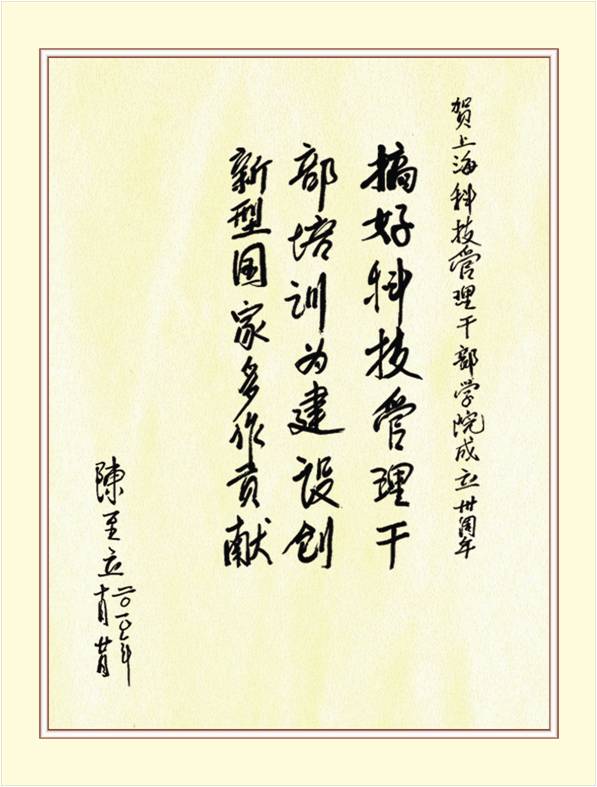 贺上海科技管理干部学院成立卅周年
搞好科技管理干
部培训为建设创
新型国家多作贡献
陳至立
二〇一〇年
十月廿